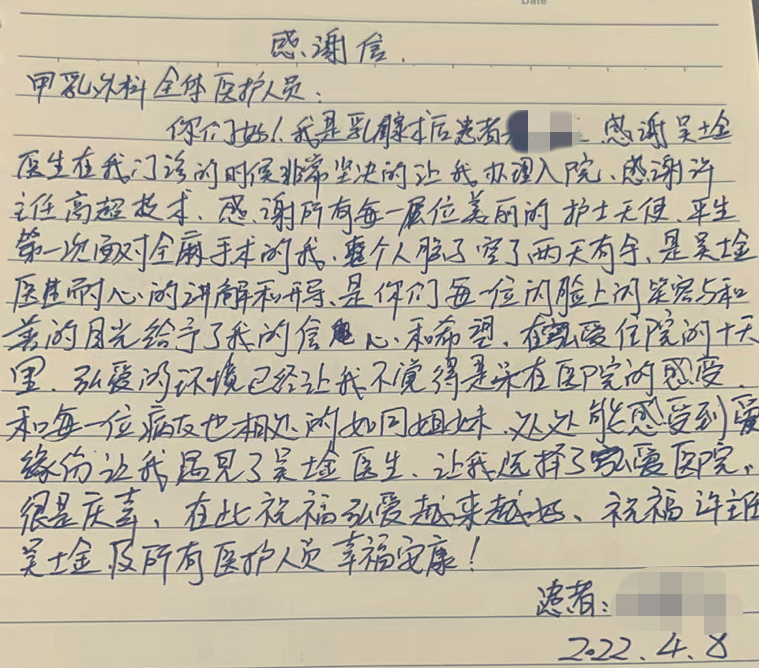 Date
感谢信.
甲乳外科全体医护人员:
你们好!我是乳腺术后患者 感谢吴士金
医生在我门诊的时候非常坚决的让我办理入院、感谢许
主任高超技术、感谢所有每一位美丽的护士天使、平生
第一次面对全麻手术的我、整个人脑子空了两天有余、是吴士金
医生耐心的讲解和开导、是你们每一位的脸上的笑容与和
善的目光给予了我的信心和希望、在弘爱住院的十天
里、弘爱的环境已经让我不觉得是呆在医院的感受、
和每一位病友也相处的如同姐妹、处处能感受到爱
缘份让我遇见了吴士金医生、让我选择了弘爱医院、
很是庆幸、在此祝福弘爱越来越好、祝福许主任
吴士金及所有医护人员幸福安康!
患者:
2022.4.8